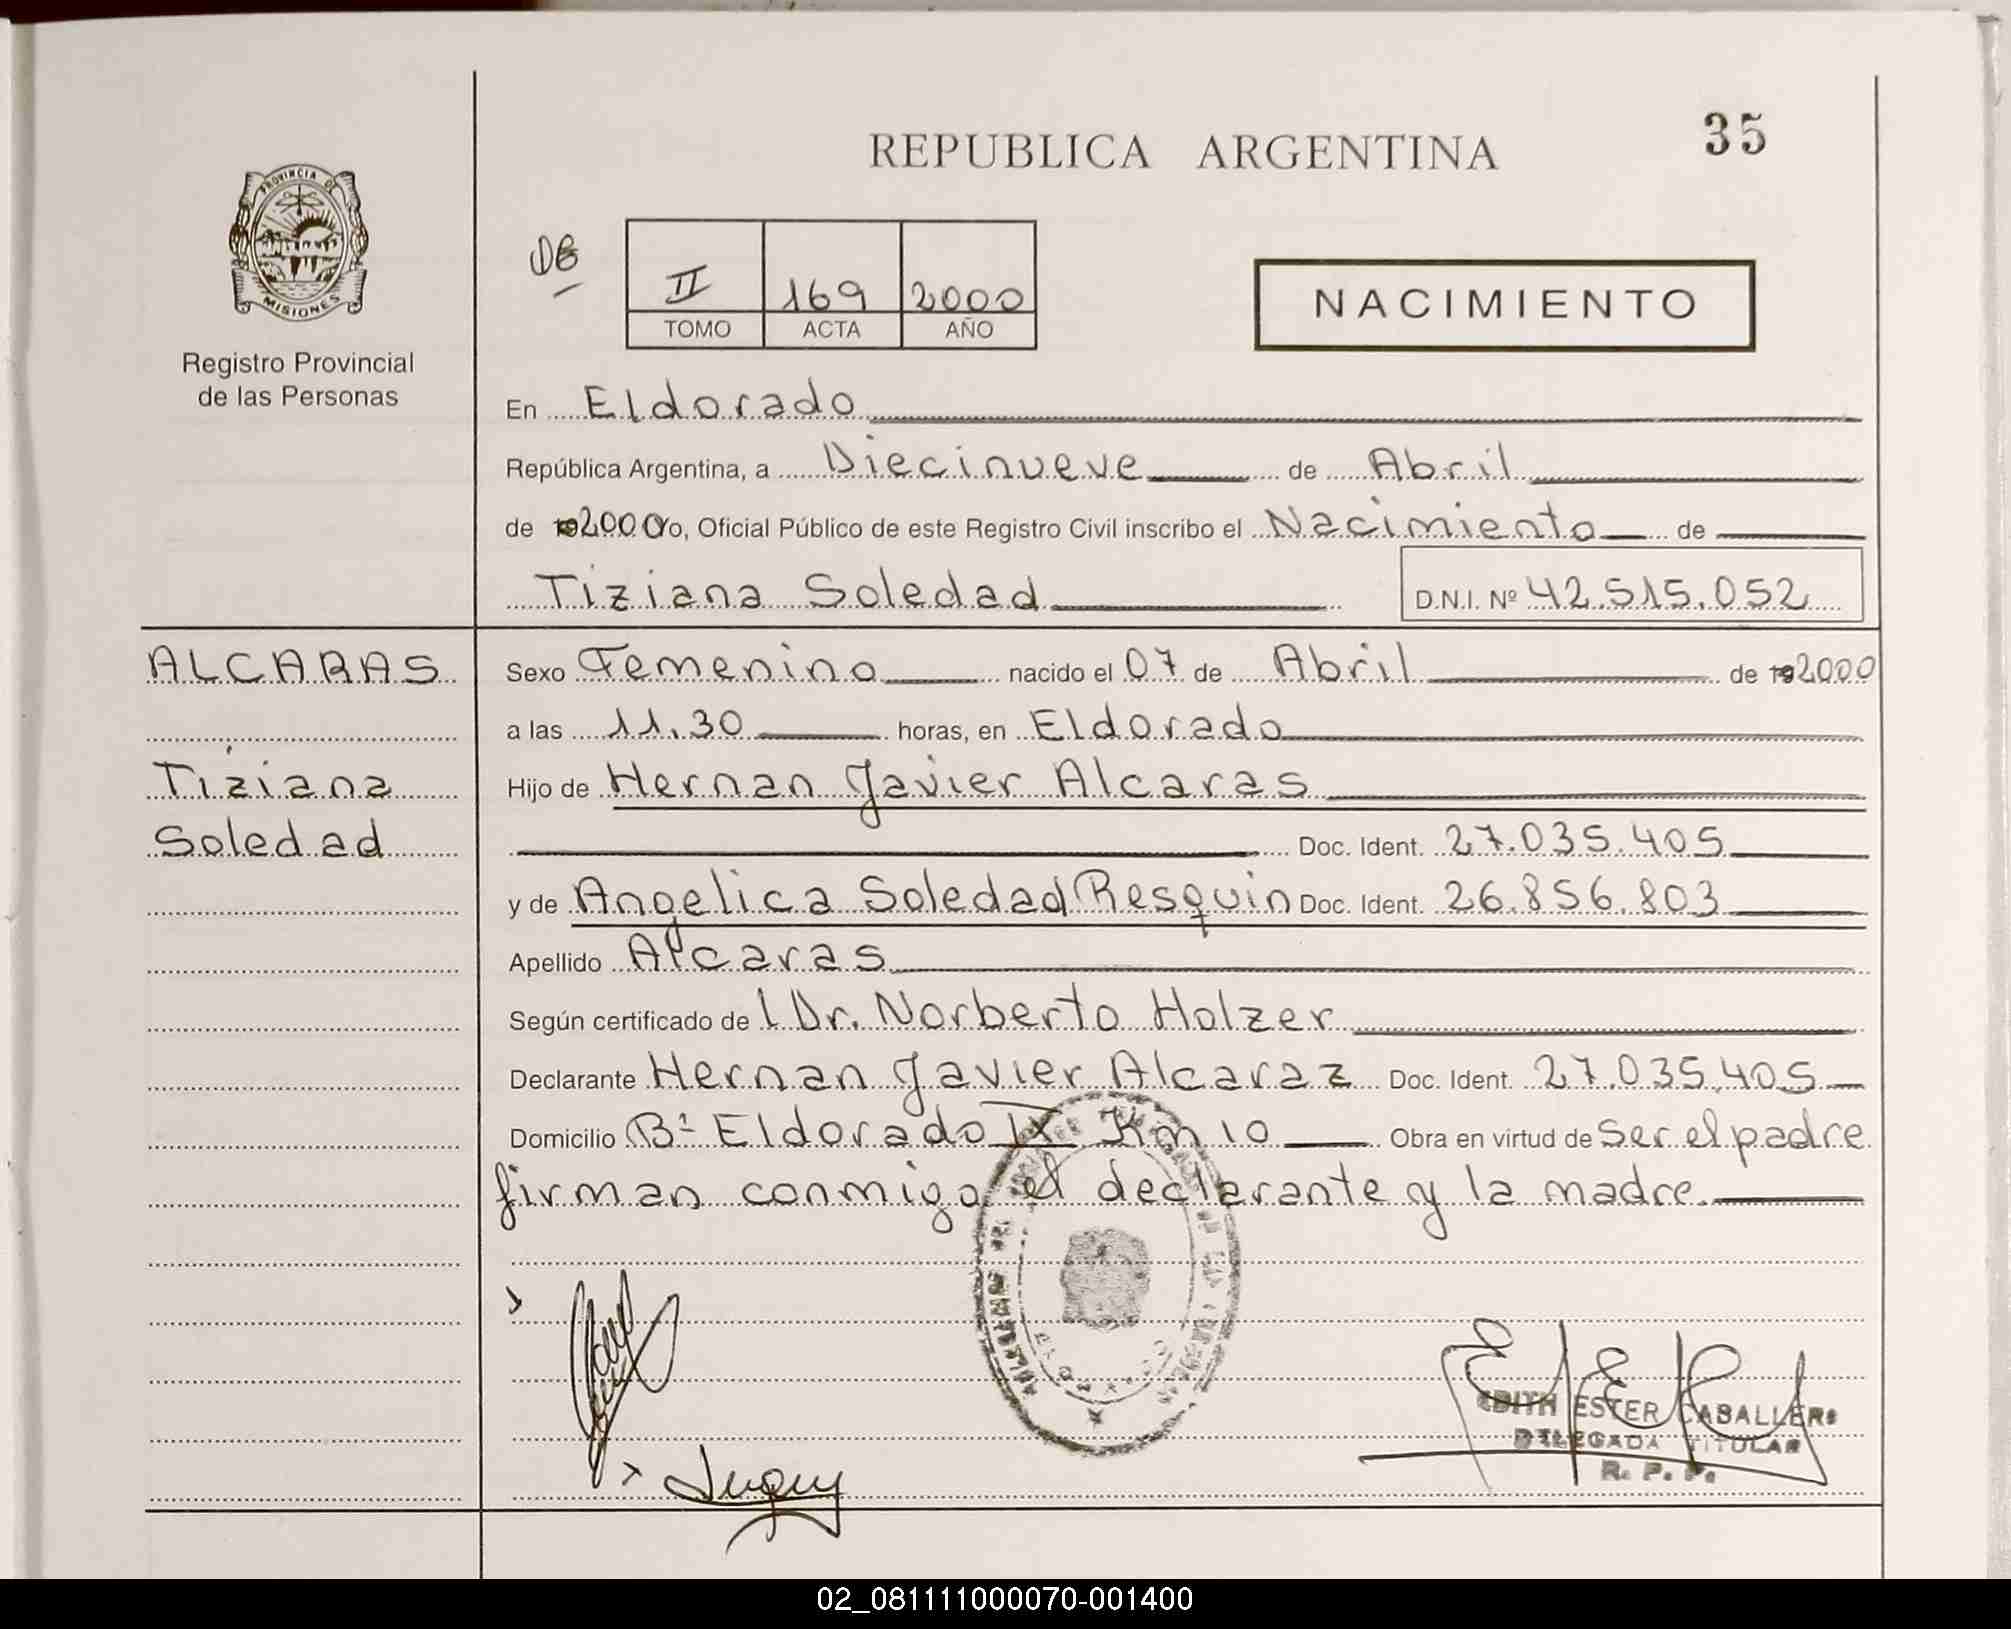 REPUBLICA ARGENTINA
35
PROVINCIA DE
MISIONES
Registro Provincial
de las Personas
II 169 2000
TOMO ACTA AÑO
NACIMIENTO
En Eldorado
República Argentina, a Diecinueve de Abril
de 192000 Yo, Oficial Público de este Registro Civil inscribo el Nacimiento de
Tiziana Soledad D.N.I. Nº 42.515.052
ALCARAS
Tiziana
Soledad
Sexo Femenino nacido el 07 de Abril de 192000
a las 11.30 horas, en Eldorado
Hijo de Hernan Javier Alcaras
Doc. Ident. 27.035.405
y de Angelica Soledad Resquin Doc. Ident. 26.856.803
Apellido Alcaras
Según certificado de l Dr. Norberto Holzer
Declarante Hernan Javier Alcaraz Doc. Ident. 27.035.405
Domicilio Bº Eldorado IX Km 10 Obra en virtud de Ser el padre
firman conmigo el declarante y la madre.
EDITH ESTER CABALLERO
DELEGADA TITULAR
R. P. P.
02_081111000070-001400